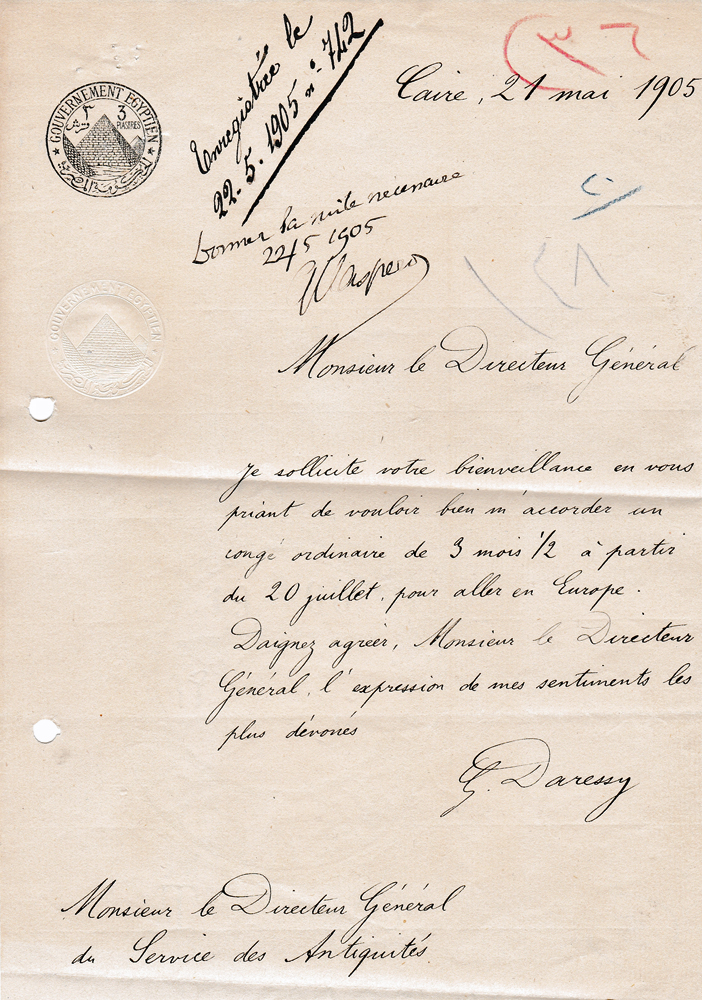 GOUVERNEMENT EGYPTIEN
3
PIASTRES
٣ قرش
الحكومة المصرية
Enregistrée le
22.5.1905 n° 742
٣٦
Caire, 21 mai 1905
Donner la suite nécessaire
22/5 1905
Maspero
GOUVERNEMENT EGYPTIEN
Monsieur le Directeur Général
Je sollicite votre bienveillance en vous
priant de vouloir bien m'accorder un
congé ordinaire de 3 mois 1/2 à partir
du 20 juillet, pour aller en Europe.
Daignez agréer, Monsieur le Directeur
Général, l'expression de mes sentiments les
plus dévoués
G. Daressy
Monsieur le Directeur Général
du Service des Antiquités